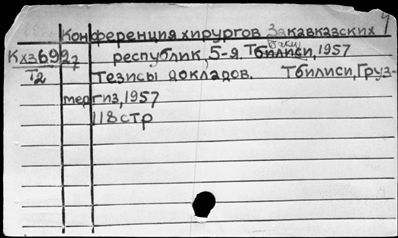 Конференция хирургов Закавказских
Кх36927 республик, 5-я. Тбилиси, 1957
Баку
Т2 Тезисы докладов. Тбилиси, Груз-
медгиз, 1957
118 стр